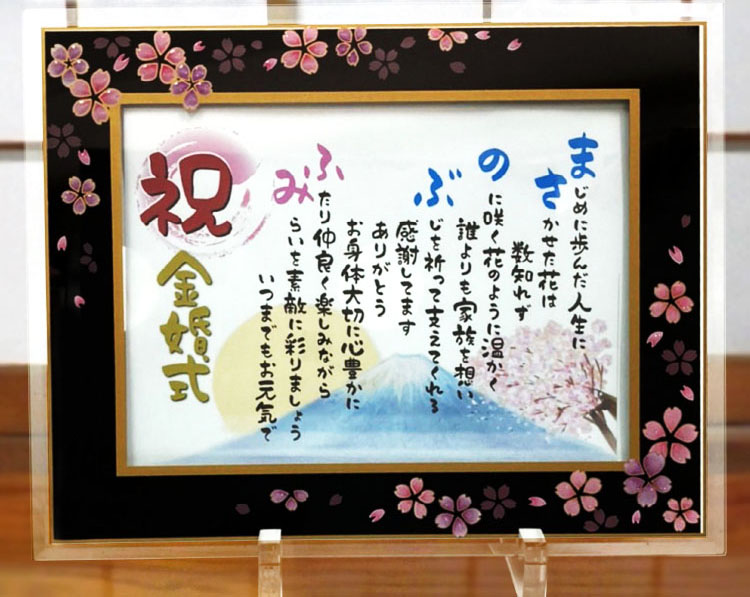 まじめに歩んだ人生に
さかせた花は
数知れず
のに咲く花のように温かく
誰よりも家族を想い
ぶじを祈って支えてくれる
感謝してます
ありがとう
お身体大切に心豊かに
ふたり仲良く楽しみながら
みらいを素敵に彩りましょう
いつまでもお元気で
祝
金婚式